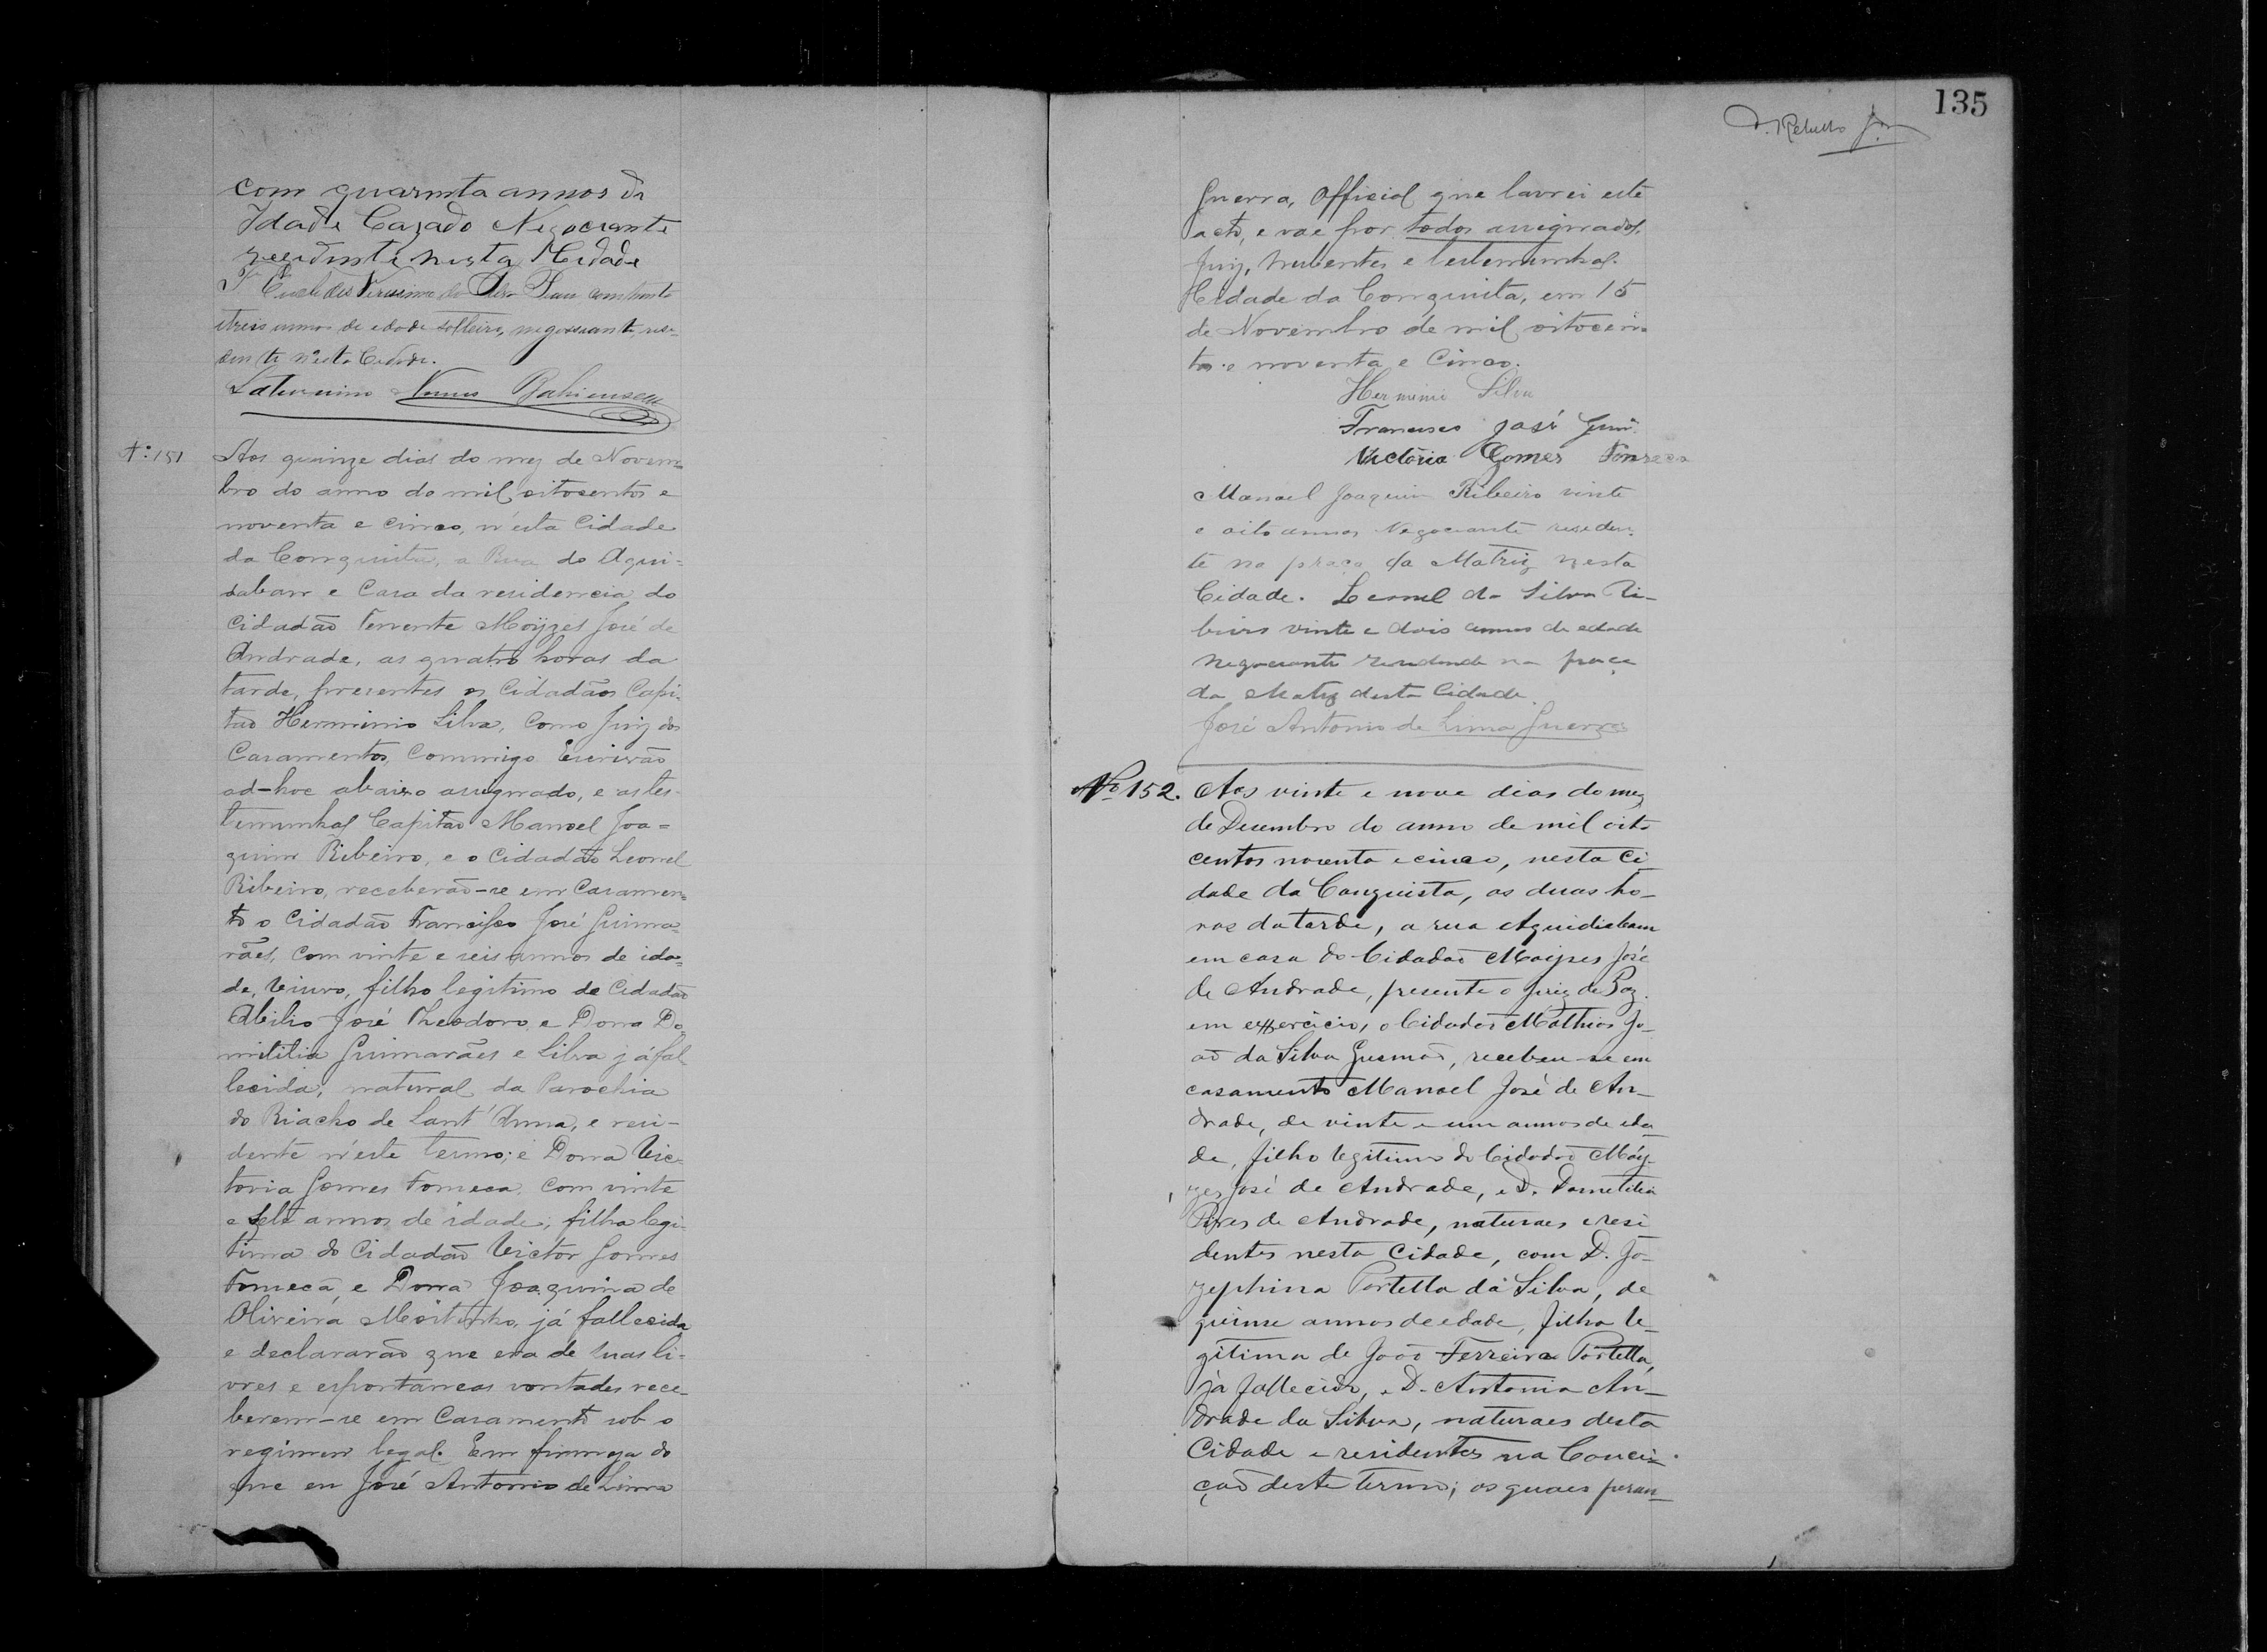 com quarenta annos de
Idade Cazado Negociante
rezidente nesta Cidade
Euclides Verissimo da Silva com trinta
e treis annos de edade solteiro, negossiante, resi-
dente n'esta Cidade.
Saturnino Nunes Bahiense
Nº 151
Aos quinze dias do mez de Novem-
bro do anno do mil oitocentos e
noventa e cinco, n'esta Cidade
da Conquista, a Rua do Aqui-
daban e Casa da residencia do
Cidadão Tenente Moÿzes José de
Andrade, as quatro horas da
tarde, presentes os Cidadãos Capi-
tão Herminio Silva, como Juiz dos
Casamentos, Commigo Escrivão
ad-hoc abaixo assignado, e as tes-
temunhas Capitão Manoel Joa-
quim Ribeiro, e o Cidadão Leonel
Ribeiro, receberão-se em Casamen-
to o Cidadão Francisco José Guima-
rães, com vinte e seis annos de ida-
de, Viuvo, filho legitimo de Cidadão
Abilio José Theodoro e Dona Do-
mitilia Guimarães e Silva já fal-
lecida; natural da Parochia
do Riacho de Sant'Anna, e resi-
dente n'este Termo; e Dona Vic-
toria Gomes Fonseca, com vinte
e sete annos de idade; filha legi-
tima do Cidadão Victor Gomes
Fonseca, e Dona Joaquina de
Oliveira Moitinho, já fallecida
e declararão que era de suas li-
vres e espontaneas vontades rece-
berem-se em Casamento sob o
regimen legal. Em firmeza do
que eu José Antonio de Lima
135
Guerra, Official que lavrei este
acto, e vae por todos assignados,
Juiz, nubentes e testemunhas.
Cidade da Conquista, em 15
de Novembro de mil oitocen-
tos e noventa e Cinco.
Herminio Silva
Francisco José Guim.
Victória Gomes Fonseca
Manoel Joaquim Ribeiro vinte
e oito annos Negociante residen-
te na praça da Matriz nesta
Cidade. Leonel da Silva Ri-
beiro vinte e dois annos de edade
negociante residente na praça
da Matriz desta Cidade.
José Antonio de Lima Guerra
Nº 152.
Aos vinte e nove dias do mez
de Desembro do anno de mil oito
centos noventa e cinco, nesta Ci-
dade da Conquista, as duas ho-
ras da tarde, a rua Aquidiabam
em casa do Cidadão Moÿses José
de Andrade, presente o juiz de Paz
em exercicio, o Cidadão Mathias Jo-
ão da Silva Gusmão, recebeu-se em
casamento Manoel José de An-
drade, de vinte e um annos de eda-
de, filho legitimo do Cidadão Moÿ-
zes José de Andrade, e D. Dometilia
Pires de Andrade, naturaes e resi
dentes nesta Cidade, com D. Jo-
zephina Portella da Silva, de
quinse annos de edade, filha le-
gitima de João Ferreira Portella,
já fallecido, e D. Antonia An-
drade da Silva, naturaes desta
Cidade e residentes na Concei-
ção deste termo; os quaes peran-